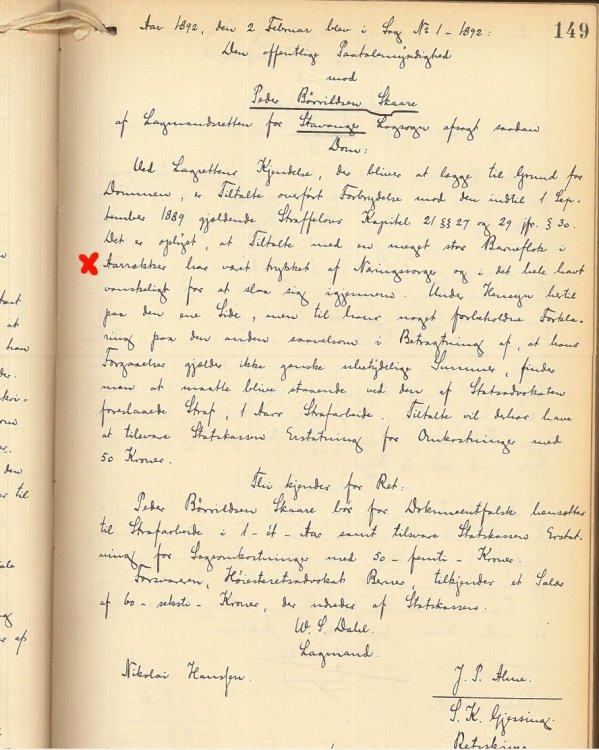 149
Aar 1892, den 2 Februar blev i Sag No 1 - 1892:
Den offentlige Paatalemyndighed
mod
Peder Börrildsen Skaare
af Lagmandsretten for Stavanger Lagsogn afsagt saadan
Dom:
Ved Lagrettens Kjendelse, der bliver at lægge til Grund for
Dommen, er Tiltalte overført Forbrydelse mod den indtil 1 Sep-
tember 1889 gjældende Straffelovs Kapitel 21 §§ 27 og 29 jfr. § 30.
Det er oplyst, at Tiltalte med en meget stor Barneflok i
Aarrækker har vært trykket af Næringssorger og i det hele havt
vanskeligt for at slaa sig igjennem. Under Hensyn hertil
paa den ene Side, men til hans noget forbeholdne Forkla-
ring paa den anden saavelsom i Betragtning af, at hans
Forgaaelser gjælder ikke ganske ubetydelige Summer, finder
man at maatte blive staaende ved den af Statsadvokaten
foreslaaede Straf, 1 Aars Strafarbeide. Tiltalte vil derhos have
at tilsvare Statskassen Erstatning for Omkostninger med
50 Kroner.
Thi kjendes for Ret:
Peder Börrildsen Skaare bör for Dokumentfalsk hensættes
til Strafarbeide i 1 - ét - Aar samt tilsvare Statskassen Erstat-
ning for Sagsomkostninger med 50 - femti - Kroner.
Forsvareren, Höiesteretsadvokat Berner, tilkjendes et Salær
af 60 - seksti - Kroner, der udredes af Statskassen.
W. S. Dahl.
Lagmand.
Nikolai Hanssen.
J. P. Alme.
S. K. Gjessing.
Retsskriver